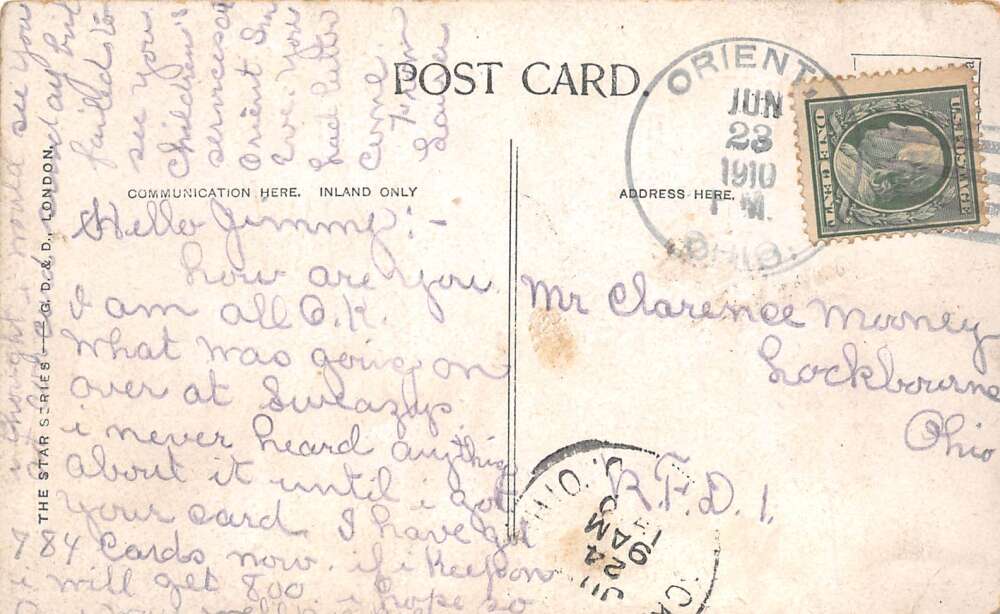 POST CARD.
COMMUNICATION HERE. INLAND ONLY
ADDRESS HERE.
THE STAR SERIES G. D. & D., LONDON.
ORIENT,
JUN
23
1910
P M.
OHIO.
U.S. POSTAGE
ONE CENT
Hello Jimmy:-
how are you
I am all O.K.
What was going on
over at Sweazys.
i never heard anything
about it until i got
your card. I have got
784 Cards now. if i Keep on
i will get 800. i hope so
i thought i would see you
Sunday but
failed to
see you
Children's
services
Orient Sun
Eve. You
had better
Come
Mr Clarence Mooney
Lockbourne
Ohio
R.F.D. 1.
OHIO.
24
AM
19